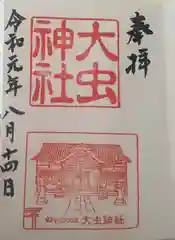 奉拝
大虫
神社
令和元年八月十四日
大虫神社